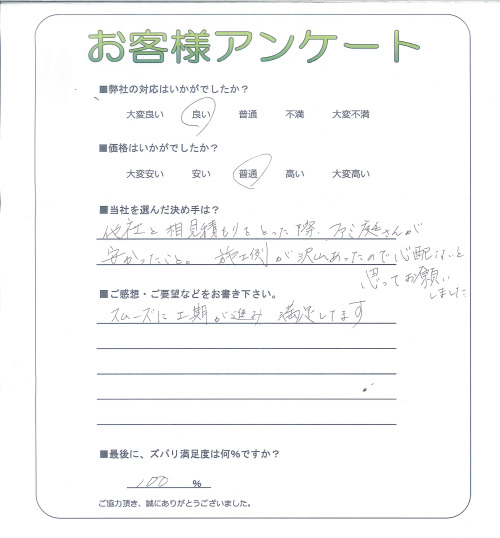 お客様アンケート
■弊社の対応はいかがでしたか?
大変良い 良い 普通 不満 大変不満
■価格はいかがでしたか?
大変安い 安い 普通 高い 大変高い
■当社を選んだ決め手は?
他社と相見積もりをとった際、ファミ庭さんが
安かったこと。 施工例が沢山あったので心配ないと
思ってお願い
しました
■ご感想・ご要望などをお書き下さい。
スムーズに工期が進み 満足してます
■最後に、ズバリ満足度は何%ですか?
100 %
ご協力頂き、誠にありがとうございました。